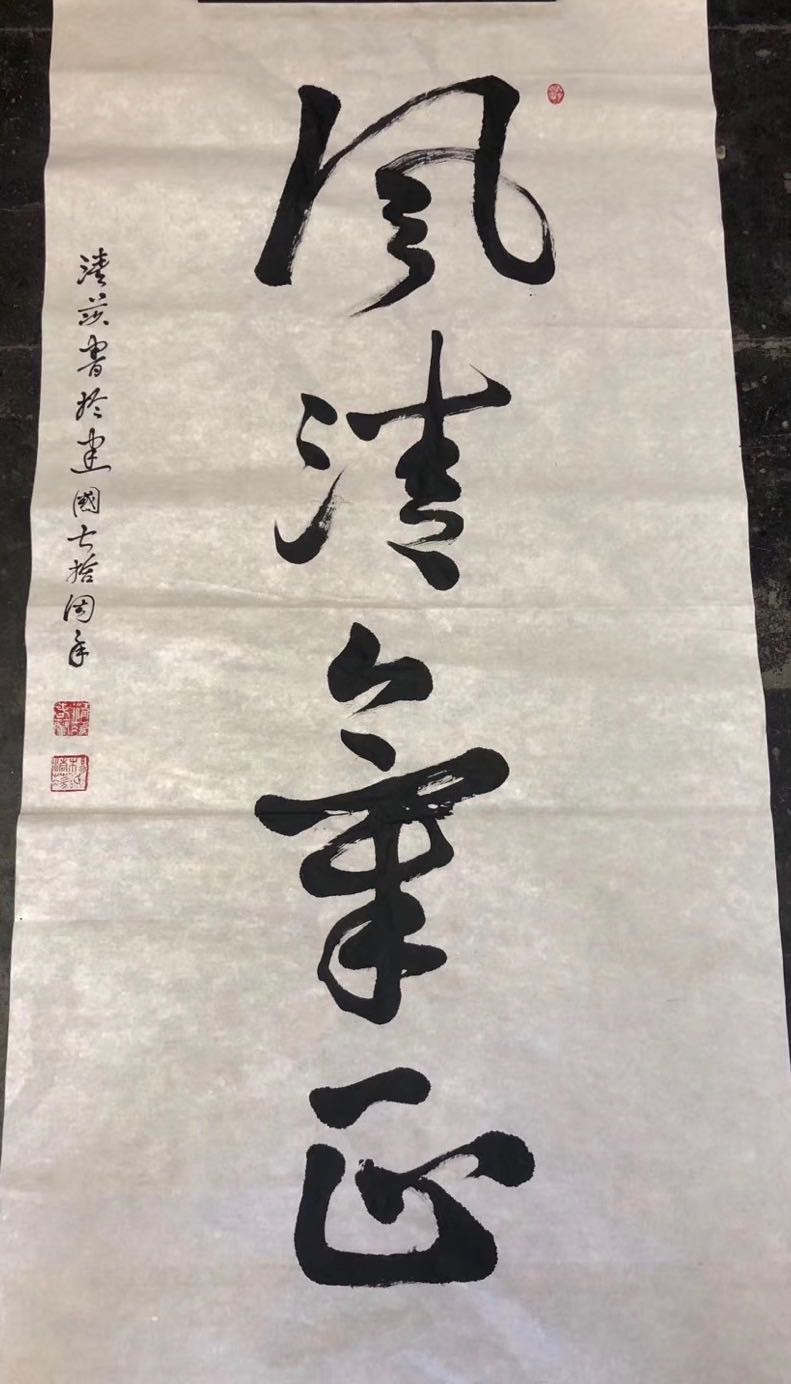 風清氣正
清 書於建國七拾周年